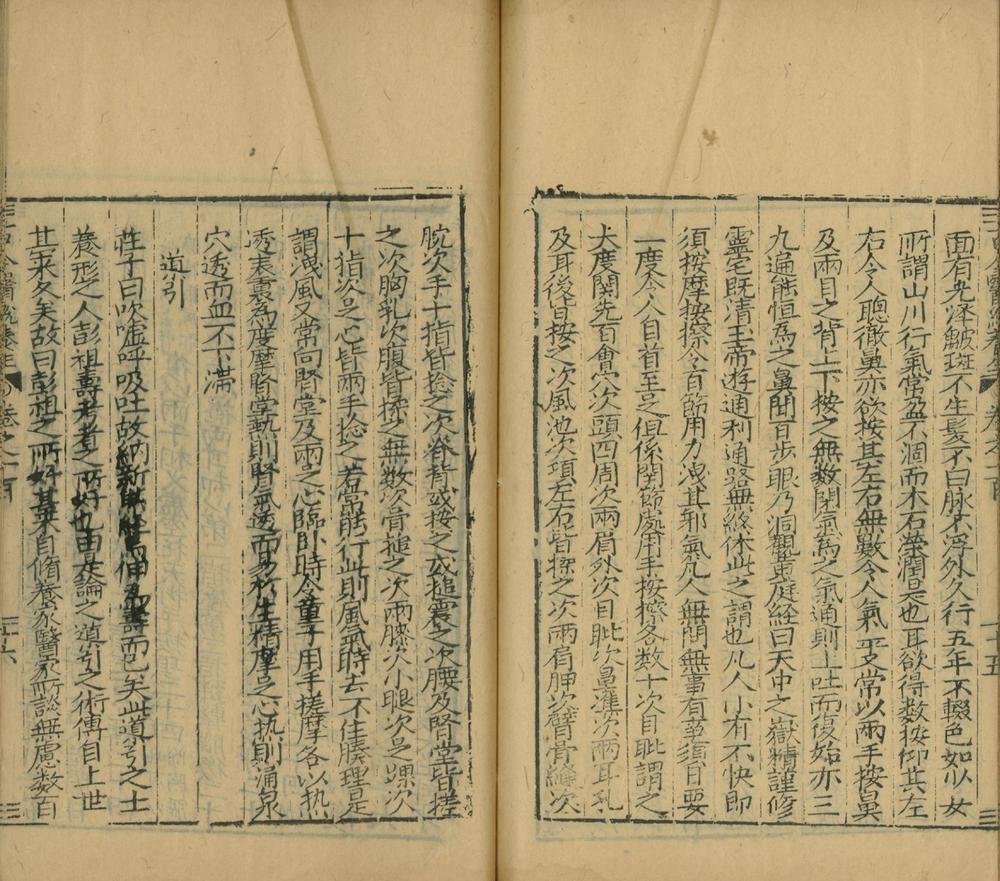 面有光澤皺斑不生髮不白脉不浮外久行五年不輟色如少女
所謂山川行氣常盈不涸而木石榮潤是也耳欲得數按仰其左
右令人聰徹鼻亦欲按其左右無數令人氣平又常以兩手按鼻
及兩目之眥上下按之無數閉氣為之氣通則上吐而復始亦三
九遍能恒為之鼻聞百步眼乃洞觀黃庭経曰天中之嶽精謹修
靈宅既清玉帝遊通利通路無終休此之謂也凡人小有不快即
須按摩按捺令百節用力洩其邪氣凡人無問無事有事須日要
一度令人自首至足但係関節處用手按捺各数十次目眦謂之
大度関先百會穴次頭四周次兩眉外次目眦次鼻準次兩耳乳
及耳後皆按之次風池次項左右皆揉之次兩肩胛次臂骨縫次
腕次手十指皆捻之次脊背或按之或槌震之次腰及腎堂皆搓
之次胸乳次腹皆揉之無数次骨槌之次兩膝次小眼次足踝次
十指次足心皆兩手捻之若常能行此則風氣時去不住腠理是
謂洩風又常向腎堂及兩足心臨卧時令童子用手搓摩各以热
透表裏為度摩腎堂熱則腎氣透而易於生精摩足心热則涌泉
穴透而血不下滯
道引
莊子曰吹嘘呼吸吐故納新熊経鳥伸為壽而已矣此道引之士
養形之人彭祖壽考者之所好也由是論之道引之術傳自上世
其来久矣故曰彭祖之所好其来自脩養家醫家所談無慮数百